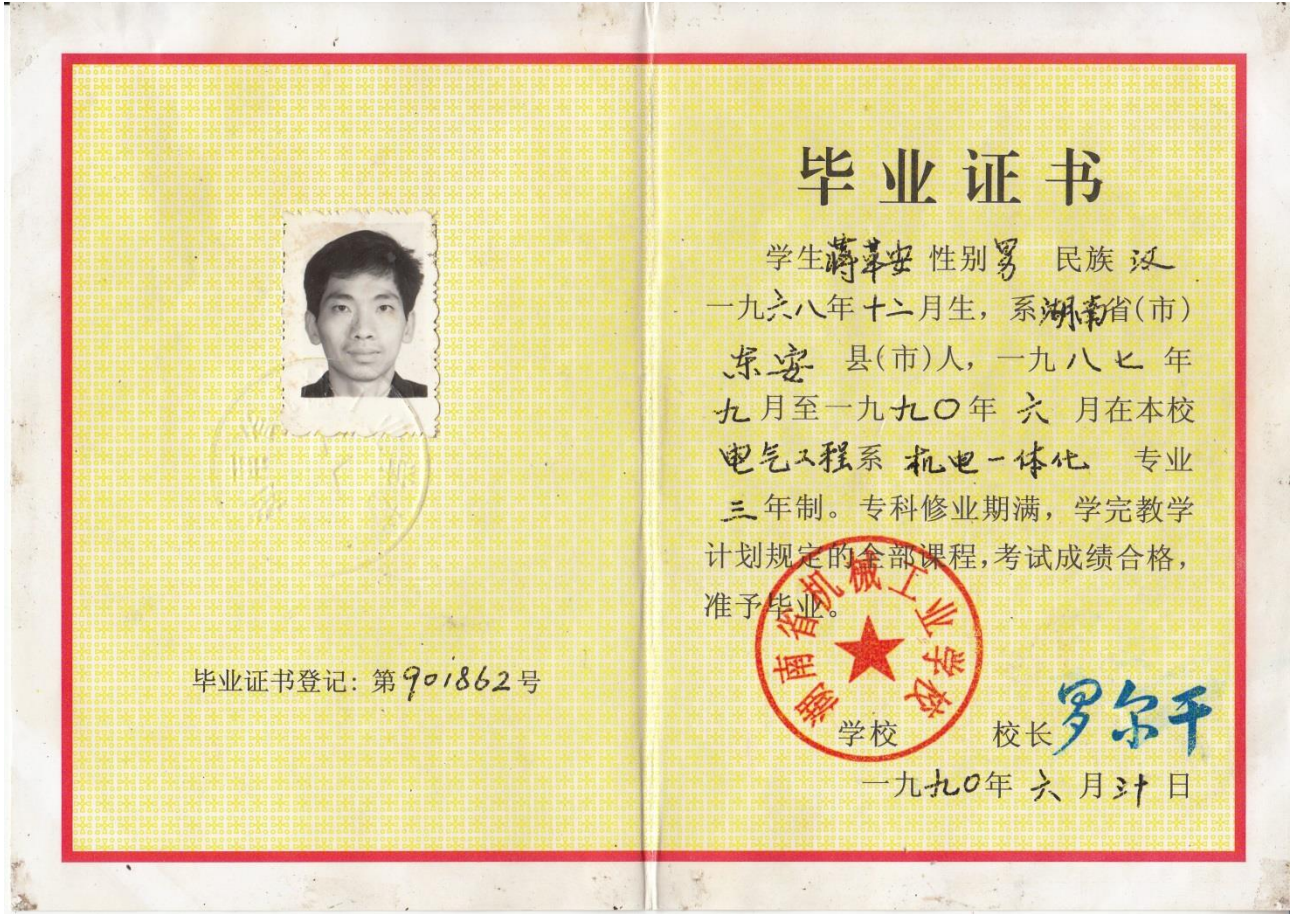 毕业证书登记: 第901862号
毕业证书
学生蒋革安 性别男 民族汉
一九六八年十二月生，系湖南省(市)
东安 县(市)人，一九八七年
九月至一九九〇年六月在本校
电气工程系 机电一体化 专业
三年制。专科修业期满，学完教学
计划规定的全部课程，考试成绩合格，
准予毕业。
湖南省机械工业学校
学校 校长 罗尔干
一九九〇年六月三十日